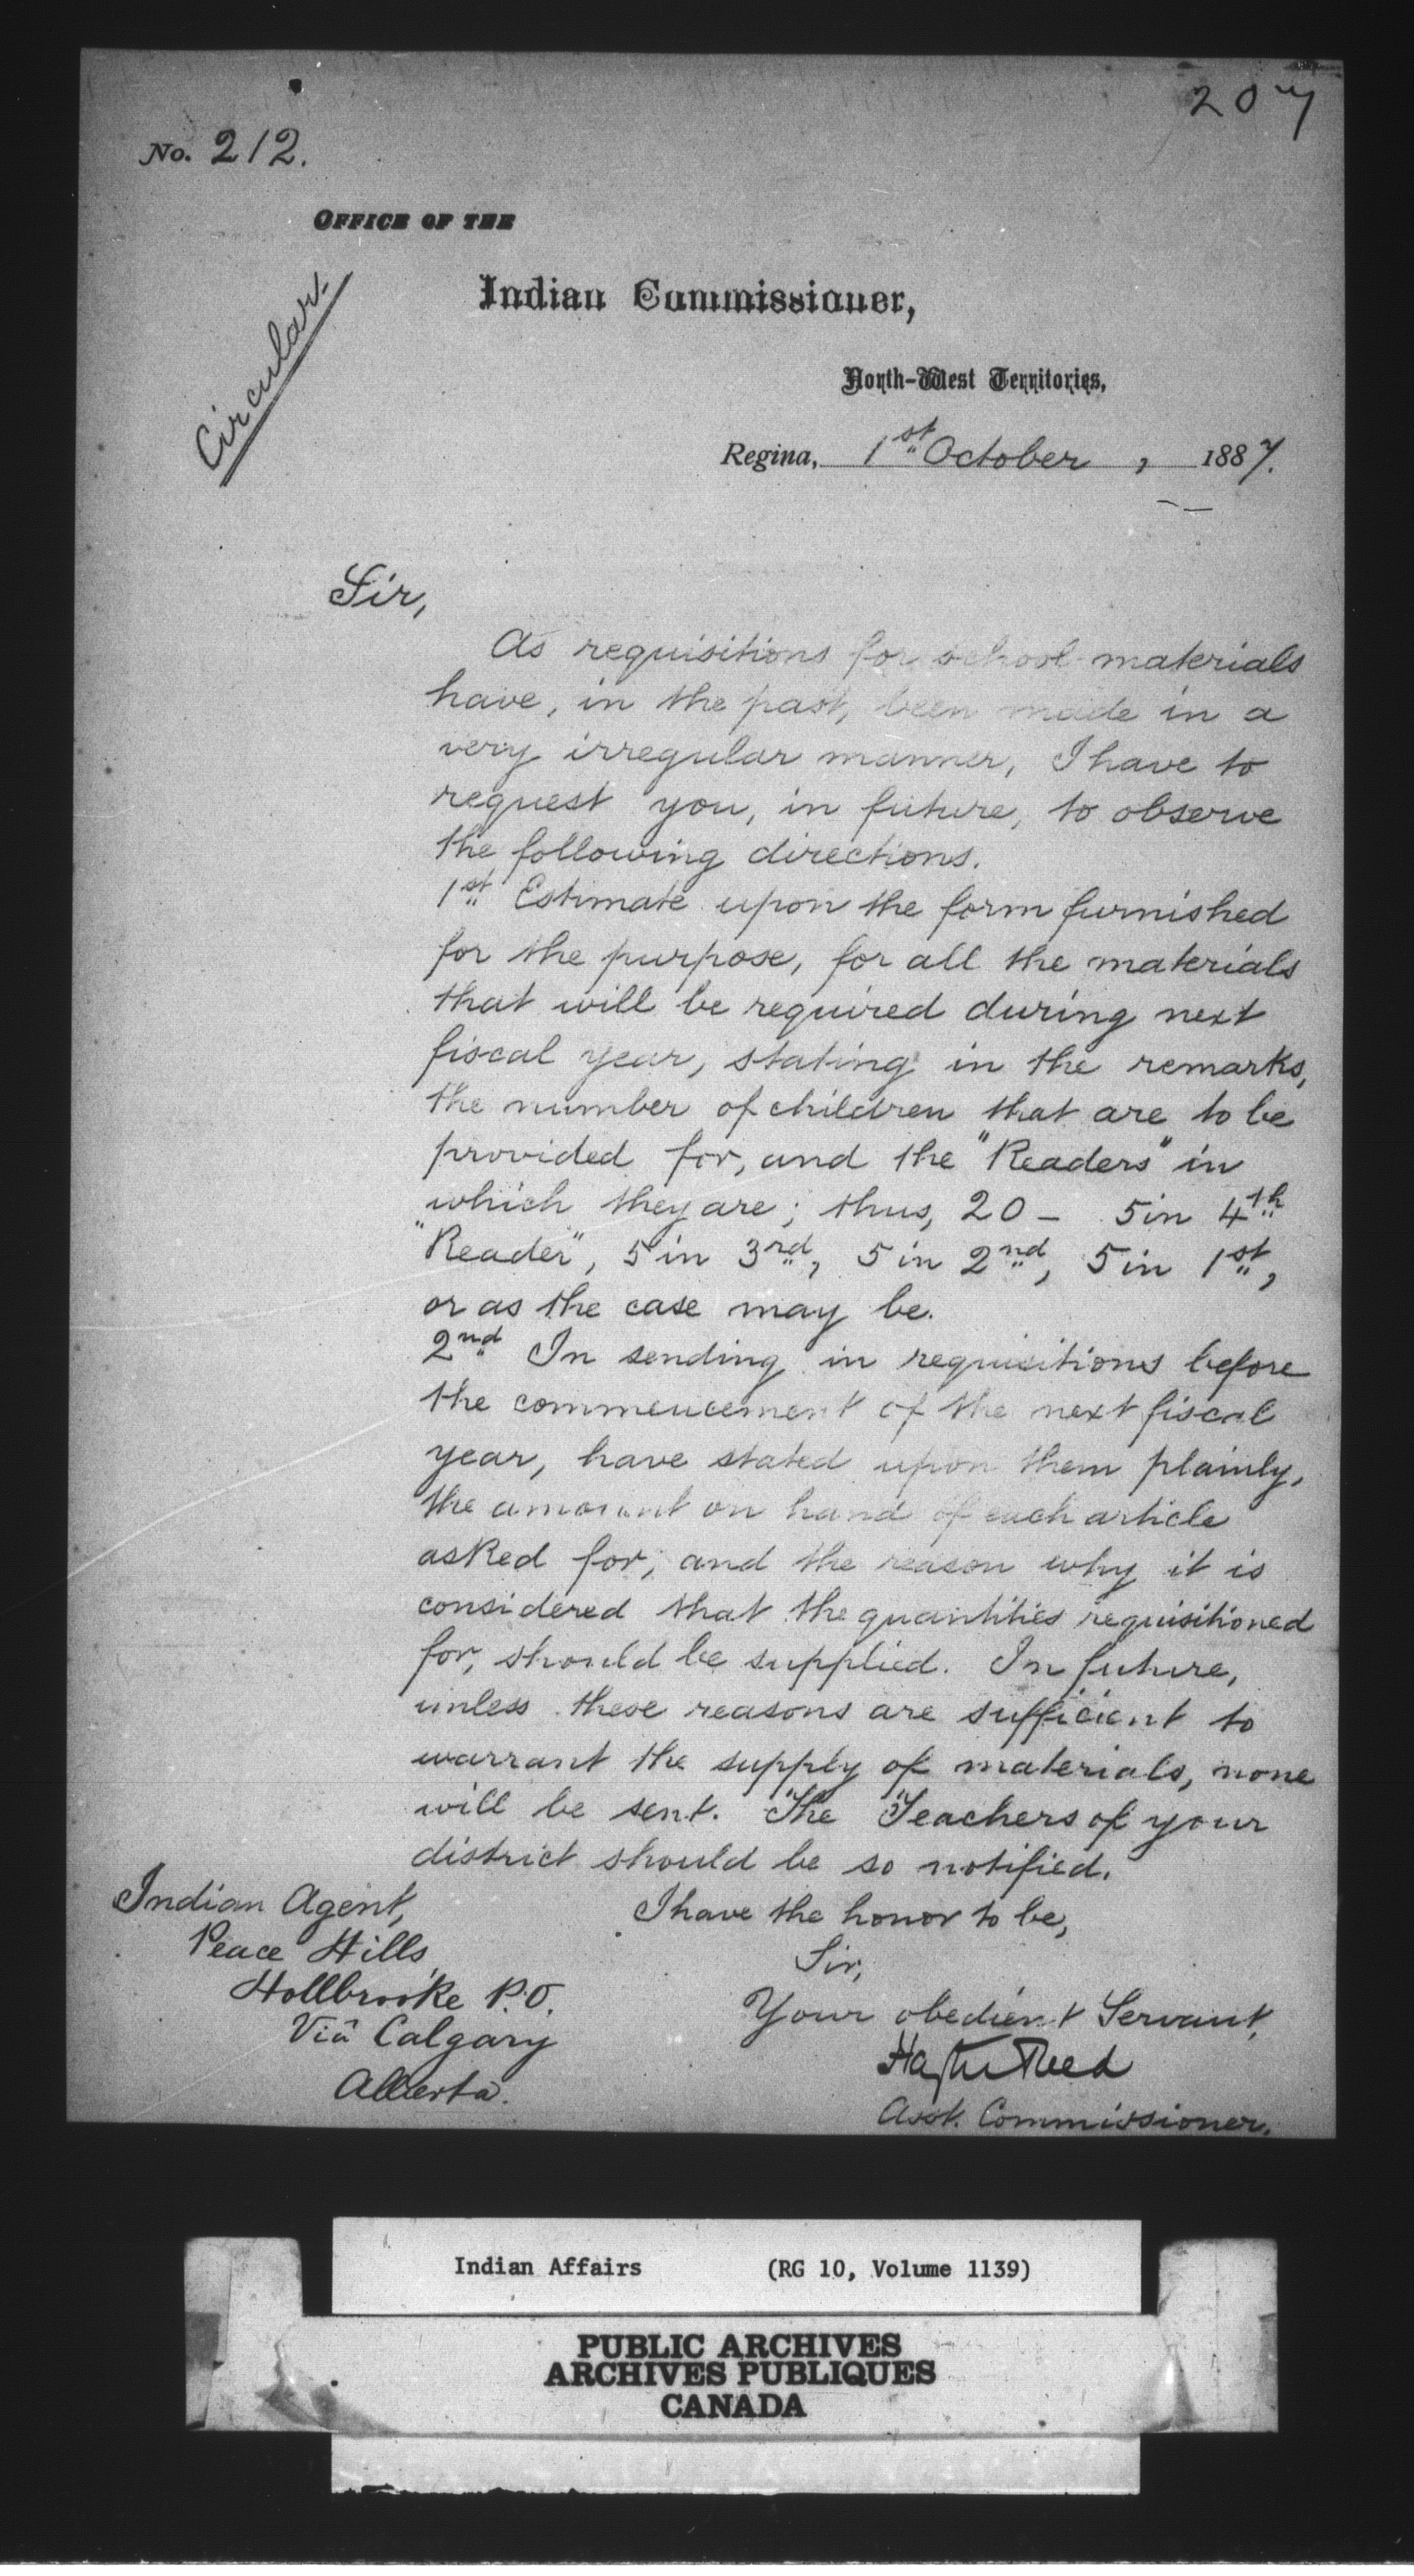 207
No. 212.
OFFICE OF THE
Indian Commissioner,
Circular.
North-West Territories,
Regina, 1st October, 1887.
Sir,
As requisitions for school materials
have, in the past, been made in a
very irregular manner, I have to
request you, in future, to observe
the following directions.
1st Estimate upon the form furnished
for the purpose, for all the materials
that will be required during next
fiscal year, stating in the remarks,
the number of children that are to be
provided for, and the "Readers" in
which they are; thus, 20 - 5 in 4th
"Reader", 5 in 3rd, 5 in 2nd, 5 in 1st,
or as the case may be.
2nd In sending in requisitions before
the commencement of the next fiscal
year, have stated upon them plainly,
the amount on hand of each article
asked for, and the reason why it is
considered that the quantities requisitioned
for, should be supplied. In future,
unless these reasons are sufficient to
warrant the supply of materials, none
will be sent. The Teachers of your
district should be so notified.
I have the honor to be,
Sir,
Your obedient Servant,
Hayter Reed
Asst. Commissioner.
Indian Agent,
Peace Hills,
Hollbrooke P.O.
Viâ Calgary
Alberta.
Indian Affairs (RG 10, Volume 1139)
PUBLIC ARCHIVES
ARCHIVES PUBLIQUES
CANADA